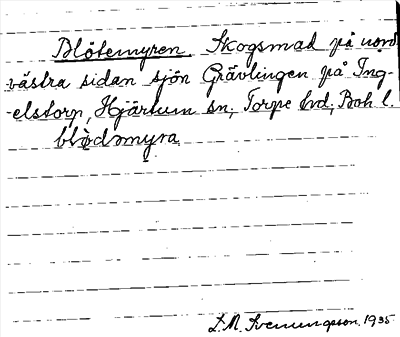 Blötemyren. Skogsmad på nord-
västra sidan sjön Grävlingen på Ing-
-elstorp, Hjärtum sn; Torpe hrd; Boh. l.
blödmyra
L. M. Svenungsson. 1935